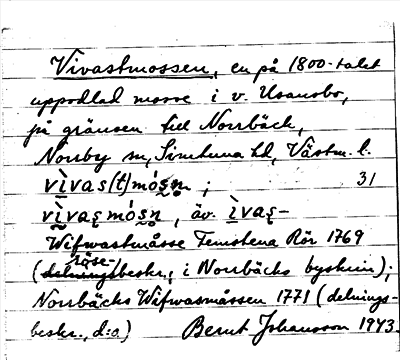 Vivastmossen, en på 1800-talet
uppodlad mosse i v. Usansbo,
på gränsen till Norrbäck,
Norrby sn, Simtuna hd, Västm. l.
vìvas(t)mósn ; 31
vìvaʂmósn, äv. ìvaʂ-
Wifwastmåsse Femstena Rör 1769
(röse-beskr., i Norrbäcks byskrin);
Norrbäcks Wifwasmåssen 1771 (delnings-
beskr., d:o.) Bernt Johansson 1973.